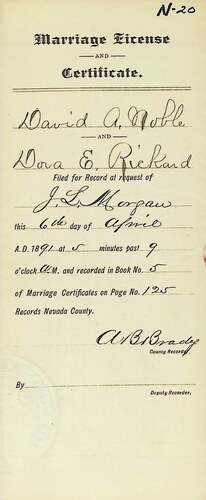 N-20
Marriage License
AND
Certificate.
David A. Noble
AND
Dora E. Rickard
Filed for Record at request of
J. L. Morgan
this 6th day of April
A.D. 1891 at 5 minutes past 9
o'clock A.M. and recorded in Book No. 5
of Marriage Certificates on Page No. 125
Records Nevada County.
A B Brady
County Recorder.
By
Deputy Recorder.